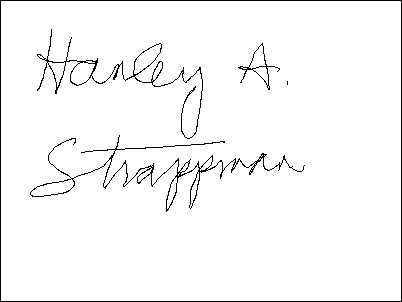 Hanley A.
Strappman